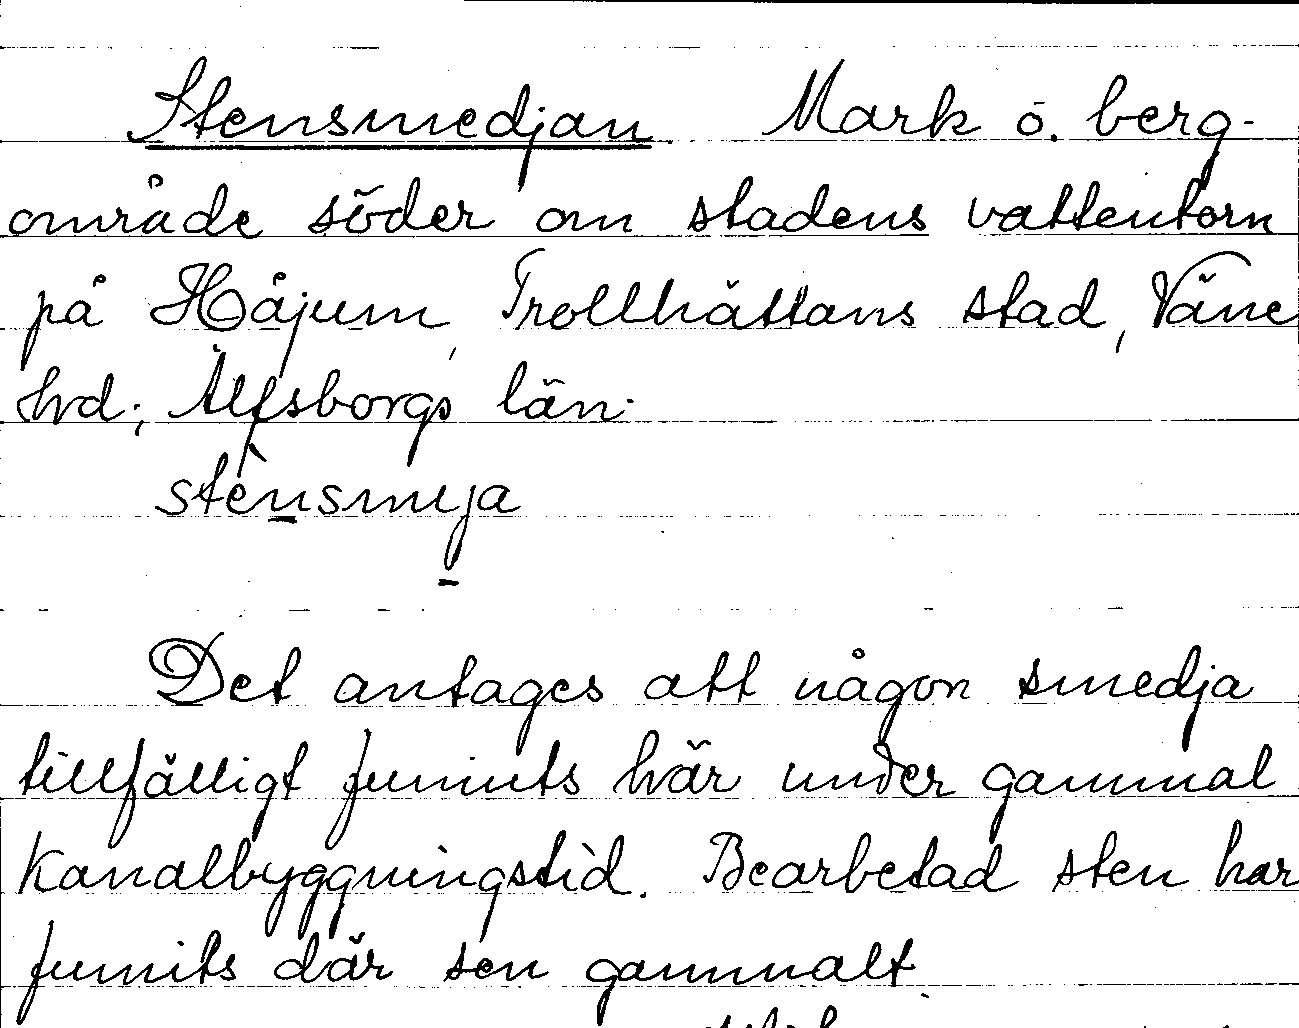 Stensmedjan. Mark o. berg-
område söder om stadens vattentorn
på Håjum, Trollhättans stad, Väne
hrd., Älfsborgs län.
stènsmɩja
Det antages att någon smedja
tillfälligt funnits här under gammal
kanalbyggningstid. Bearbetad sten har
funnits där sen gammalt.